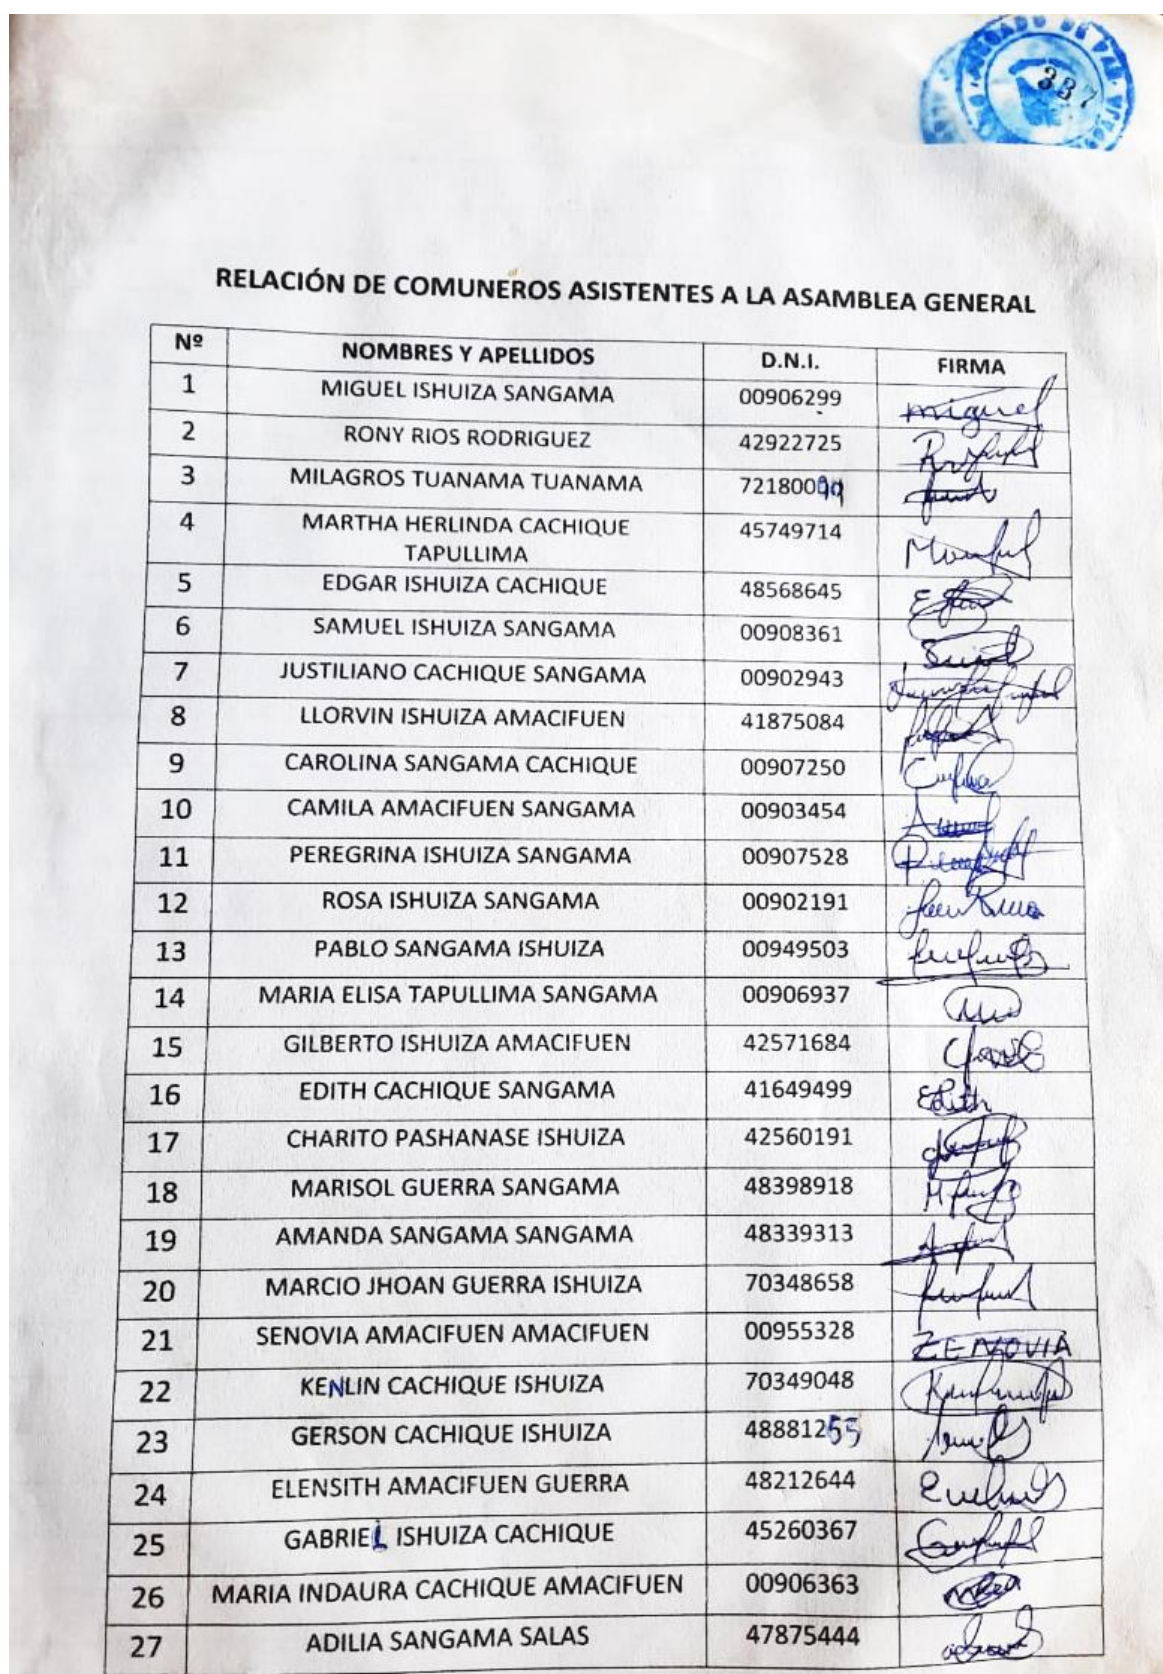 JUZGADO DE PAZ
337
RELACIÓN DE COMUNEROS ASISTENTES A LA ASAMBLEA GENERAL
Nº NOMBRES Y APELLIDOS D.N.I. FIRMA
1 MIGUEL ISHUIZA SANGAMA 00906299 Miguel
2 RONY RIOS RODRIGUEZ 42922725
3 MILAGROS TUANAMA TUANAMA 72180099
4 MARTHA HERLINDA CACHIQUE
TAPULLIMA 45749714
5 EDGAR ISHUIZA CACHIQUE 48568645
6 SAMUEL ISHUIZA SANGAMA 00908361
7 JUSTILIANO CACHIQUE SANGAMA 00902943
8 LLORVIN ISHUIZA AMACIFUEN 41875084
9 CAROLINA SANGAMA CACHIQUE 00907250
10 CAMILA AMACIFUEN SANGAMA 00903454
11 PEREGRINA ISHUIZA SANGAMA 00907528
12 ROSA ISHUIZA SANGAMA 00902191
13 PABLO SANGAMA ISHUIZA 00949503
14 MARIA ELISA TAPULLIMA SANGAMA 00906937
15 GILBERTO ISHUIZA AMACIFUEN 42571684
16 EDITH CACHIQUE SANGAMA 41649499 Edith
17 CHARITO PASHANASE ISHUIZA 42560191
18 MARISOL GUERRA SANGAMA 48398918
19 AMANDA SANGAMA SANGAMA 48339313
20 MARCIO JHOAN GUERRA ISHUIZA 70348658
21 SENOVIA AMACIFUEN AMACIFUEN 00955328 ZENOVIA
22 KENLIN CACHIQUE ISHUIZA 70349048
23 GERSON CACHIQUE ISHUIZA 48881255
24 ELENSITH AMACIFUEN GUERRA 48212644
25 GABRIEL ISHUIZA CACHIQUE 45260367
26 MARIA INDAURA CACHIQUE AMACIFUEN 00906363
27 ADILIA SANGAMA SALAS 47875444